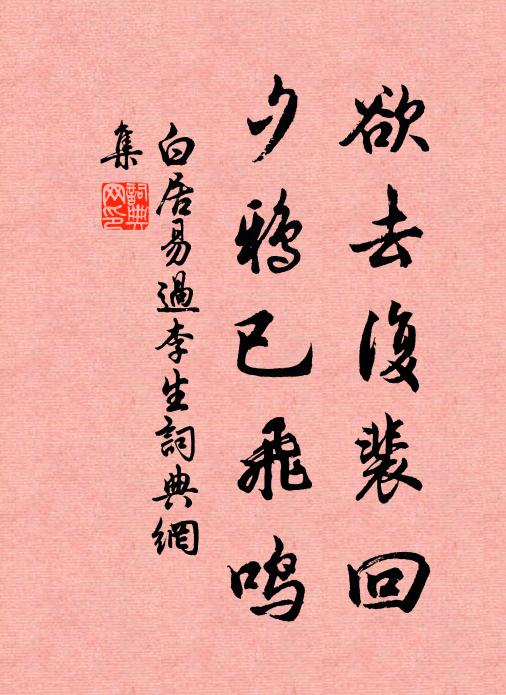 欲去復裴回
夕鴉已飛鳴
白居易過李生詞典網
集
詞典網印